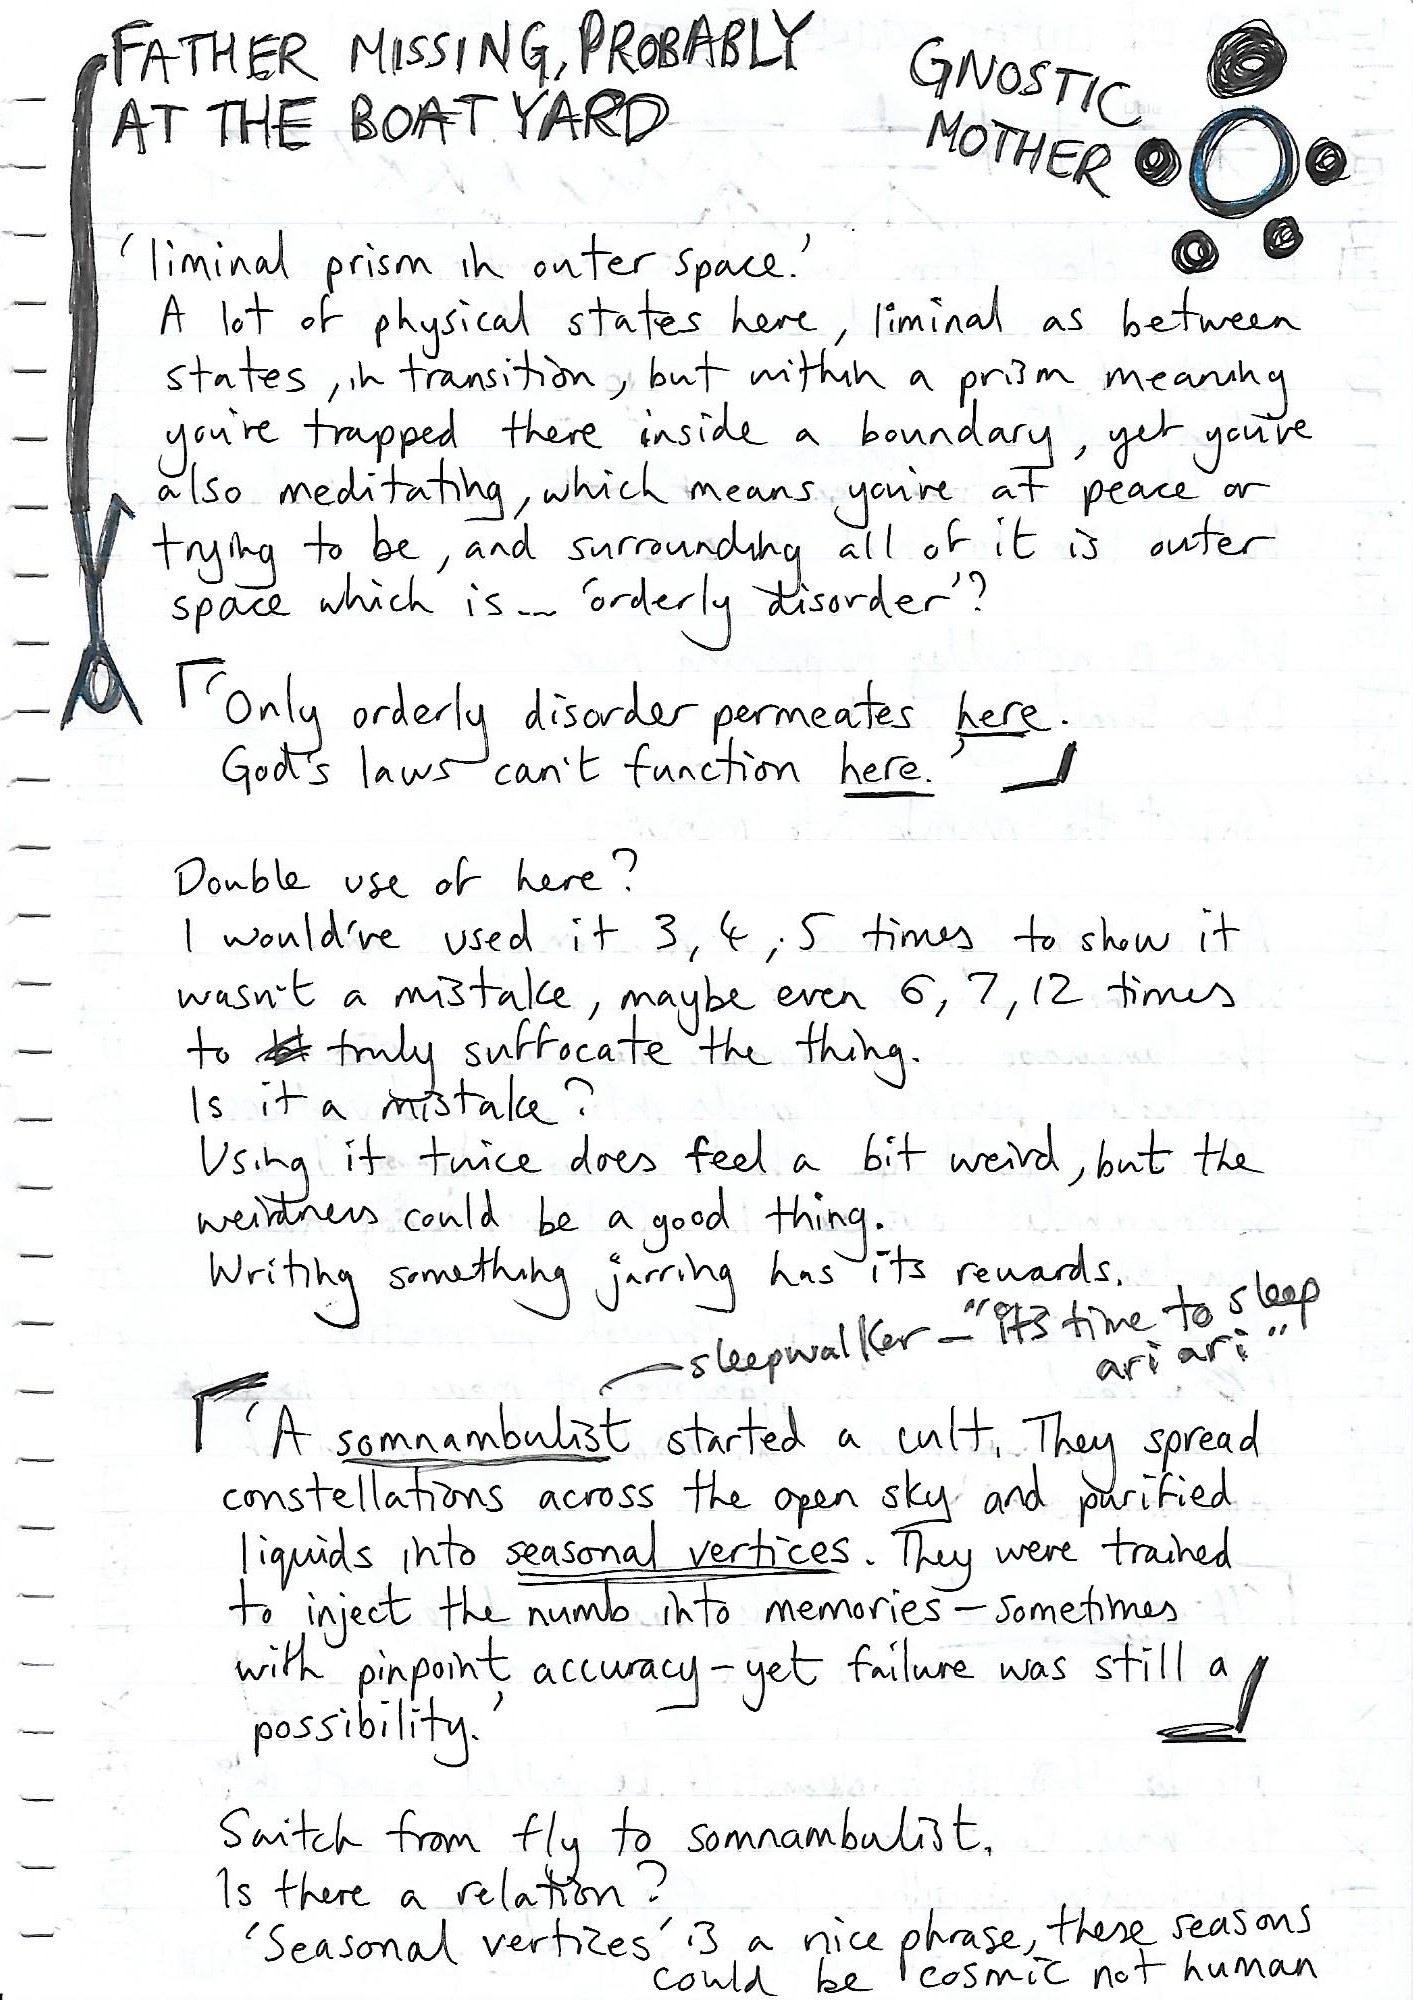 FATHER MISSING, PROBABLY
AT THE BOAT YARD
GNOSTIC
MOTHER
'liminal prism in outer space.'
A lot of physical states here, liminal as between
states, in transition, but within a prism meaning
you're trapped there inside a boundary, yet you're
also meditating, which means you're at peace or
trying to be, and surrounding all of it is outer
space which is... 'orderly disorder'?
'Only orderly disorder permeates here.
God's laws can't function here.'
Double use of here?
I would've used it 3, 4, 5 times to show it
wasn't a mistake, maybe even 6, 7, 12 times
to truly suffocate the thing.
Is it a mistake?
Using it twice does feel a bit weird, but the
weirdness could be a good thing.
Writing something jarring has its rewards.
sleepwalker - "its time to sleep
ari ari"
'A somnambulist started a cult. They spread
constellations across the open sky and purified
liquids into seasonal vertices. They were trained
to inject the numb into memories - sometimes
with pinpoint accuracy - yet failure was still a
possibility.'
Switch from fly to somnambulist.
Is there a relation?
'Seasonal vertices' is a nice phrase, these seasons
could be cosmic not human